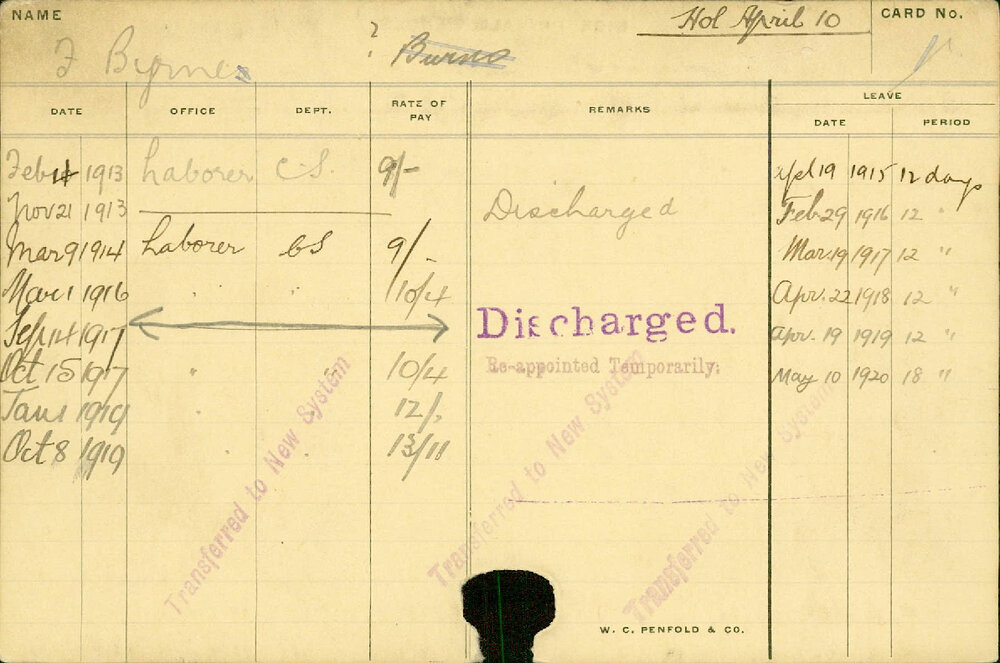 NAME Hol April 10 CARD No.
F Byrnes ? Burns
DATE OFFICE DEPT. RATE OF PAY REMARKS LEAVE
DATE PERIOD
Feb 1913 Laborer C.S. 9/- Apl 19 1915 12 days
Nov 21 1913 Discharged Feb 29 1916 12 "
Mar 9 1914 Laborer CS 9/- Mar 19 1917 12 "
Mar 1 1916 " " 10/4 Apr. 22 1918 12 "
Sep 14 1917 Discharged. Apr. 19 1919 12 "
Oct 15 1917 " " 10/4 Re-appointed Temporarily. May 10 1920 18 "
Jan 1 1919 " " 12/-
Oct 8 1919 " " 13/11
Transferred to New System
Transferred to New System
Transferred to New System
W. C. PENFOLD & CO.